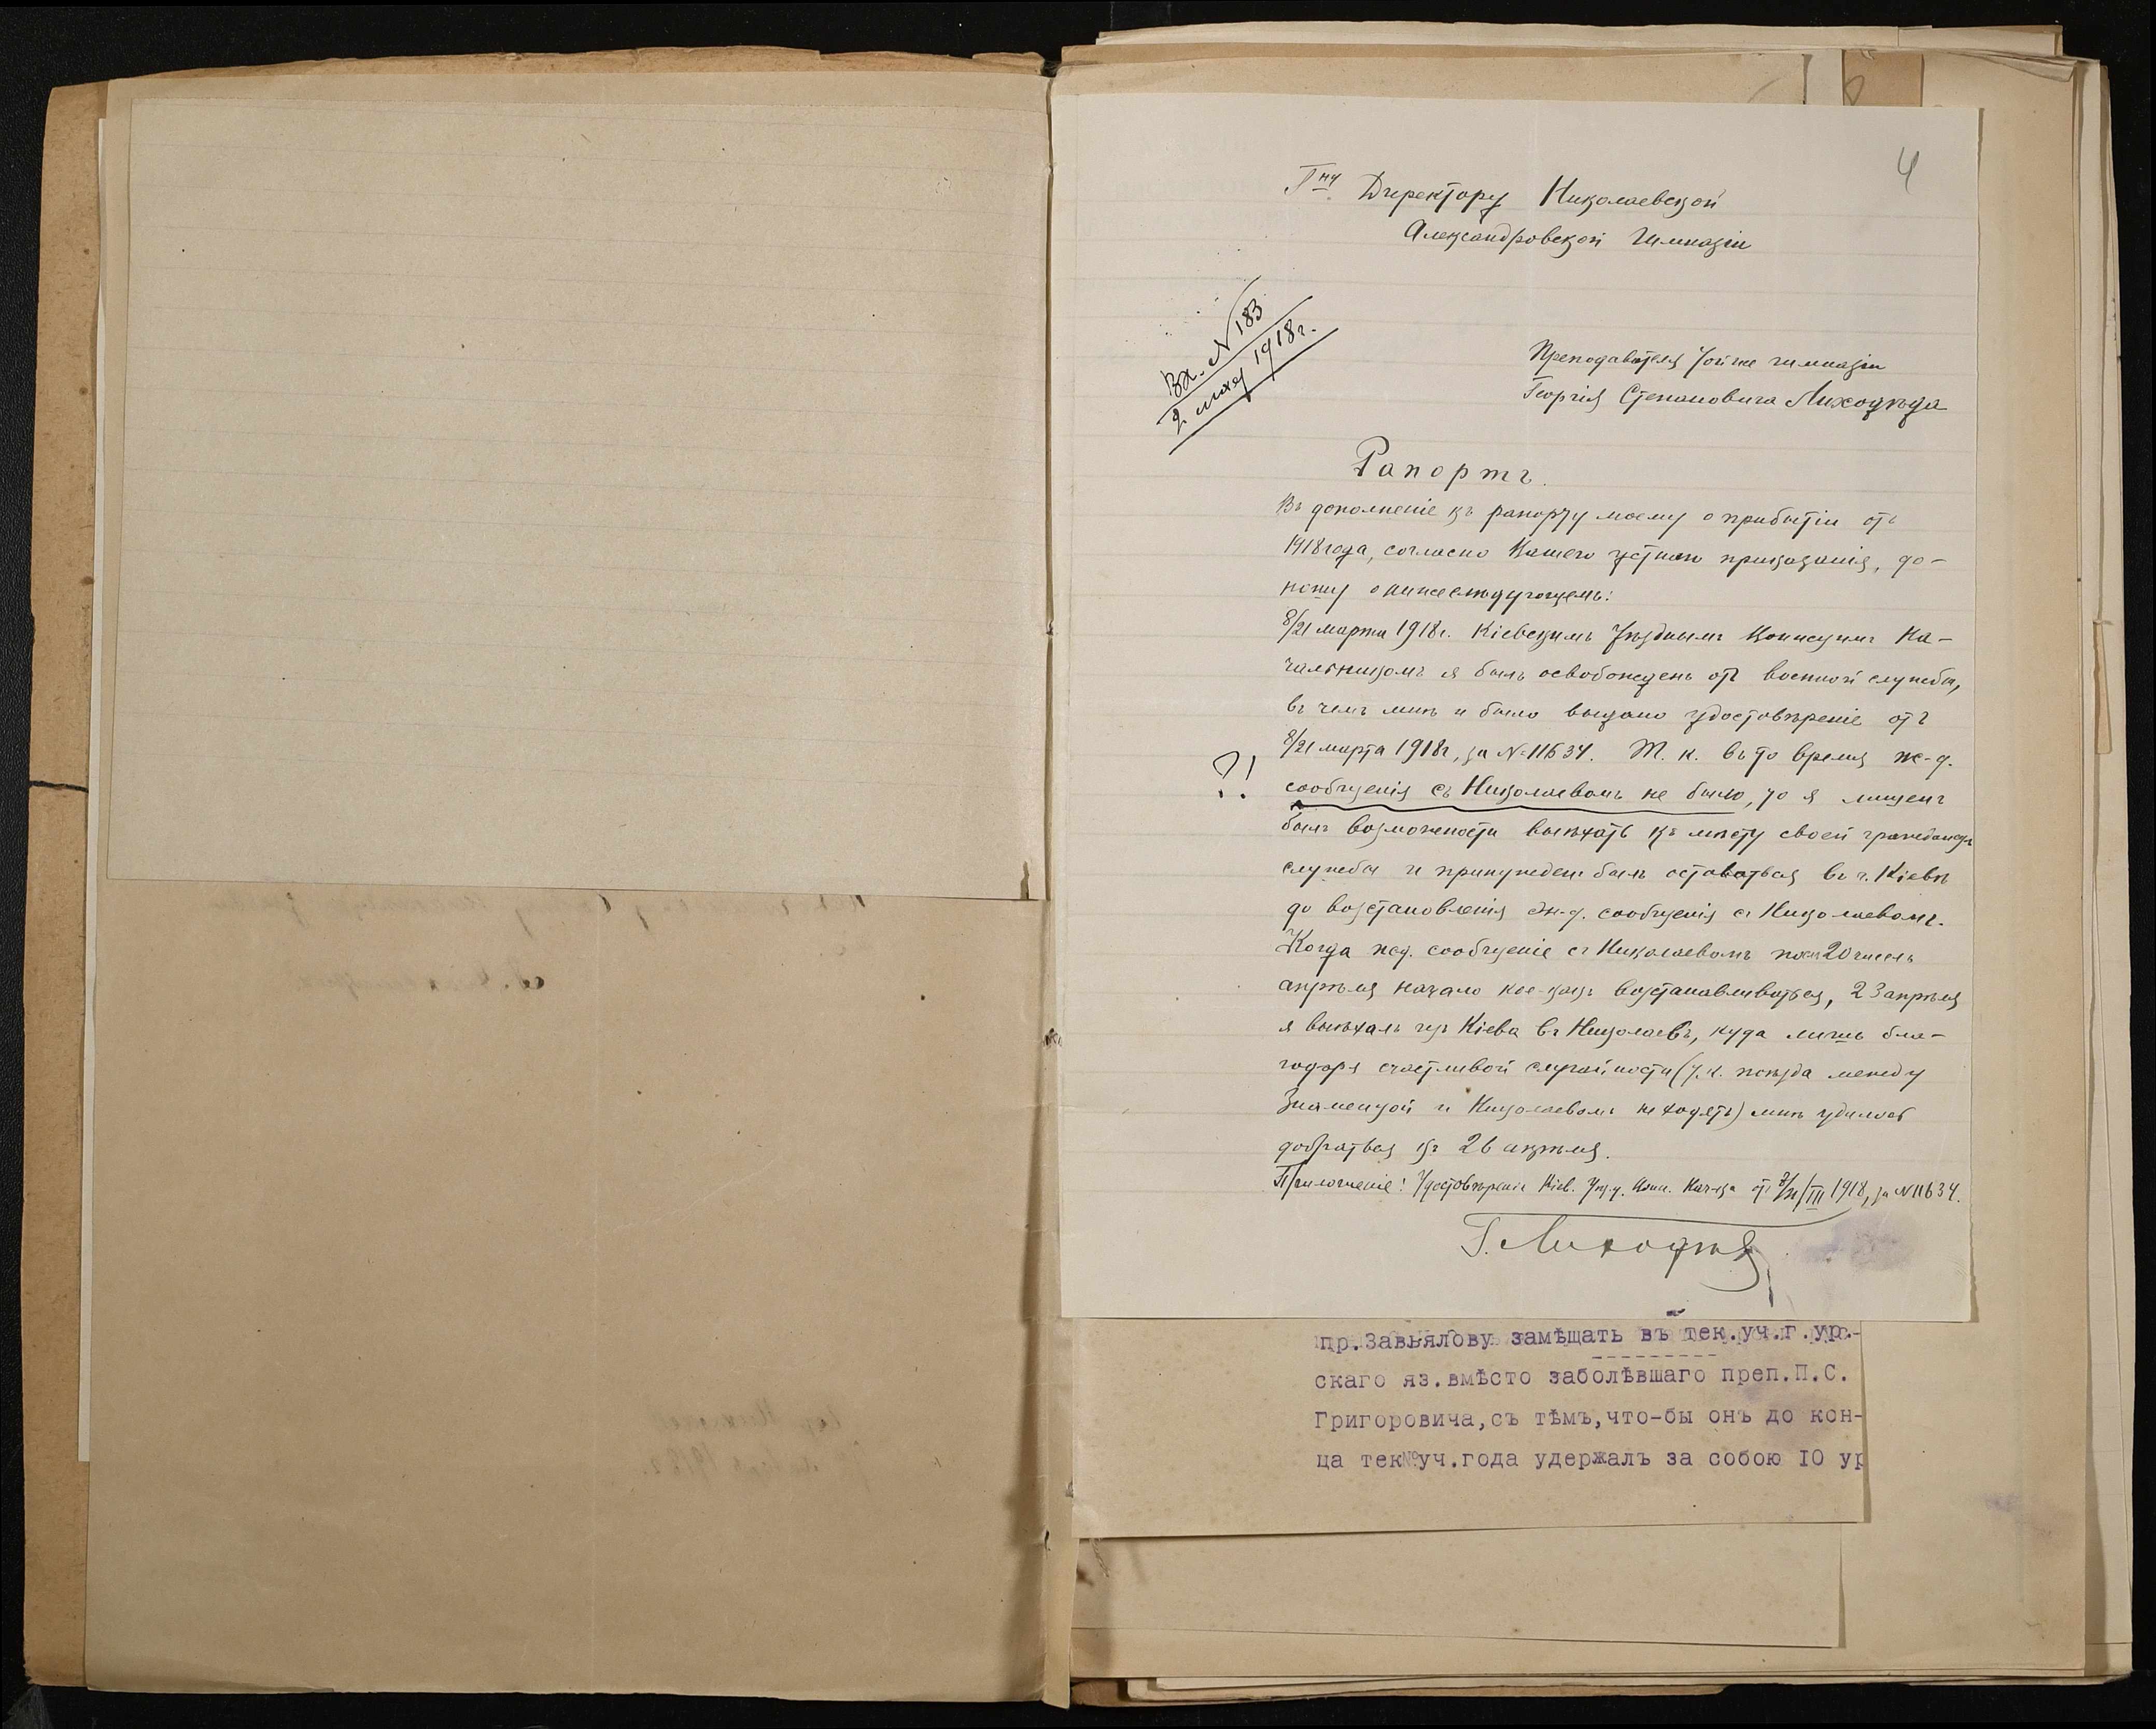 4
Г<sup>ну</sup> Директору Николаевской
Александровской Гимназіи
Вх. № 183
2 мая 1918 г.
Преподавателя той же гимназіи
Георгія Степановича Лиходѣда
Рапортъ.
Въ дополненіе къ рапорту моему о прибытіи отъ
1918 года, согласно Вашего устнаго приказанія, до-
ношу о нижеслѣдующемъ:
8/21 марта 1918 г. Кіевскимъ Уѣзднымъ Воинскимъ На-
чальникомъ я былъ освобожденъ отъ военной службы,
въ чемъ мнѣ и было выдано удостовѣреніе отъ
8/21 марта 1918 г, за № 11634. Т. к. въ то время ж-д.
?! сообщенія съ Николаевомъ не было, то я лишенъ
былъ возможности выѣхать къ мѣсту своей гражданск
службы и принужденъ былъ оставаться въ г. Кіевѣ
до возстановленія ж-д. сообщенія съ Николаевомъ.
Когда жд. сообщеніе съ Николаевомъ 20 чиселъ
апрѣля начало кое-какъ возстанавливаться, 23 апрѣля
я выѣхалъ изъ Кіева въ Николаевъ, куда лишь бла-
годаря счастливой случайности (т. к. поѣзда между
Знаменкой и Николаевомъ не ходятъ) мнѣ удалось
добраться къ 26 апрѣля.
Приложеніе: Удостовѣреніе Кіев. Уѣзд. Воин. Нач-ка отъ 8/21/III 1918, за № 11634.
Г. Лиходѣд
пр. Завьялову замѣщать въ тек.уч.г.ур.-
скаго яз.вмѣсто заболѣвшаго преп.П.С.
Григоровича,съ тѣмъ,что-бы онъ до кон-
ца тек№уч.года удержалъ за собою IO ур